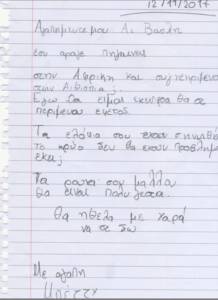 12/11/2017
Αγαπημενε μου Αι Βασιλη
εσυ αραγε πηγαινεις
στην Αφρικη και συγκεκριμενα
στην Αιθιοπια;
Εγω θα ειμαι εκει θα σε
περιμενω εφετος.
Τα ελαφια σου εχουν συνηθισει
το κρυο δεν θα εχουν προβλημα
εκει;
Τα ρουχα σου μαλλα
θα ειναι πολυ ζεστα.
θα ηθελα με χαρά
να σε δω
Με αγαπη